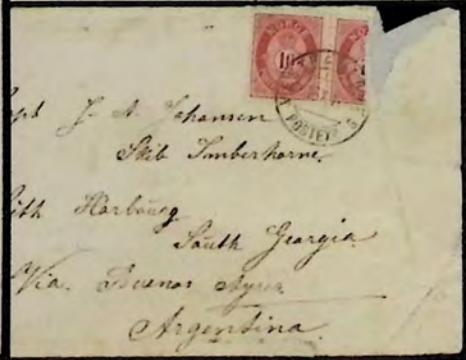 NORGE
10
POSTEX
Capt J. A. Johansen
Skib Timberhorne
Lith Harbourg
South Georgia
Via. Buenos Ayres
Argentina.